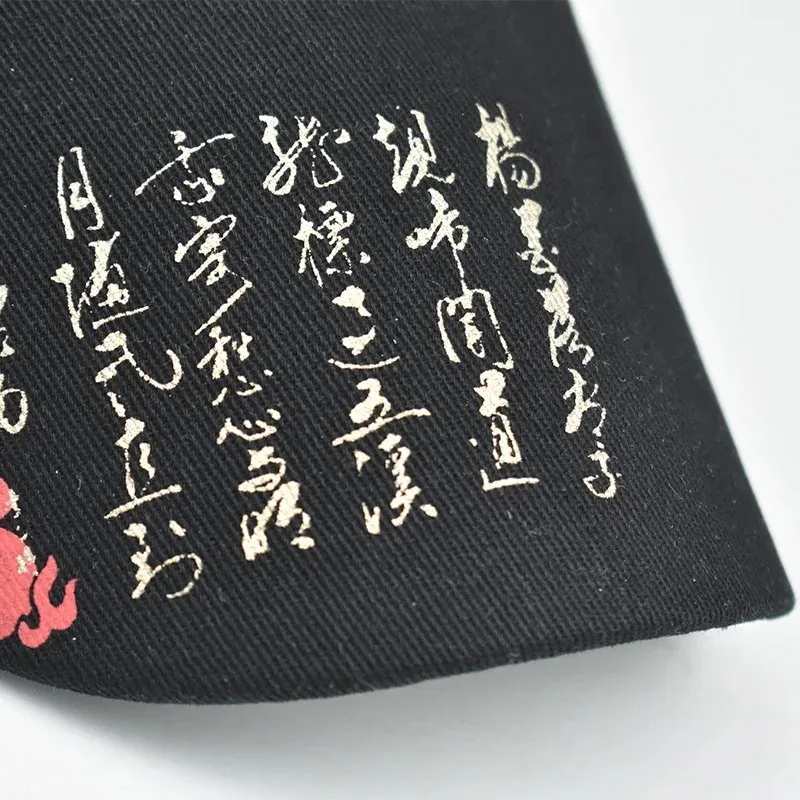 楊花落尽子
規啼聞道
龍標過五溪
我寄愁心与明
月隨風直到